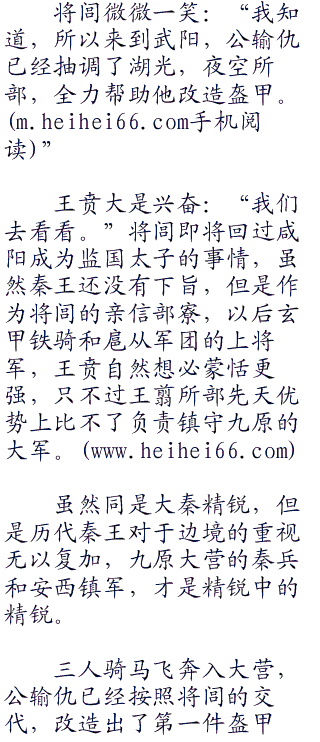 将闾微微一笑：“我知
道，所以来到武阳，公输仇
已经抽调了湖光，夜空所
部，全力帮助他改造盔甲。
(m.heihei66.com手机阅
读)”
王贲大是兴奋：“我们
去看看。”将闾即将回过咸
阳成为监国太子的事情，虽
然秦王还没有下旨，但是作
为将闾的亲信部寮，以后玄
甲铁骑和扈从军团的上将
军，王贲自然想必蒙恬更
强，只不过王翦所部先天优
势上比不了负责镇守九原的
大军。(www.heihei66.com)
虽然同是大秦精锐，但
是历代秦王对于边境的重视
无以复加，九原大营的秦兵
和安西镇军，才是精锐中的
精锐。
三人骑马飞奔入大营，
公输仇已经按照将闾的交
代，改造出了第一件盔甲